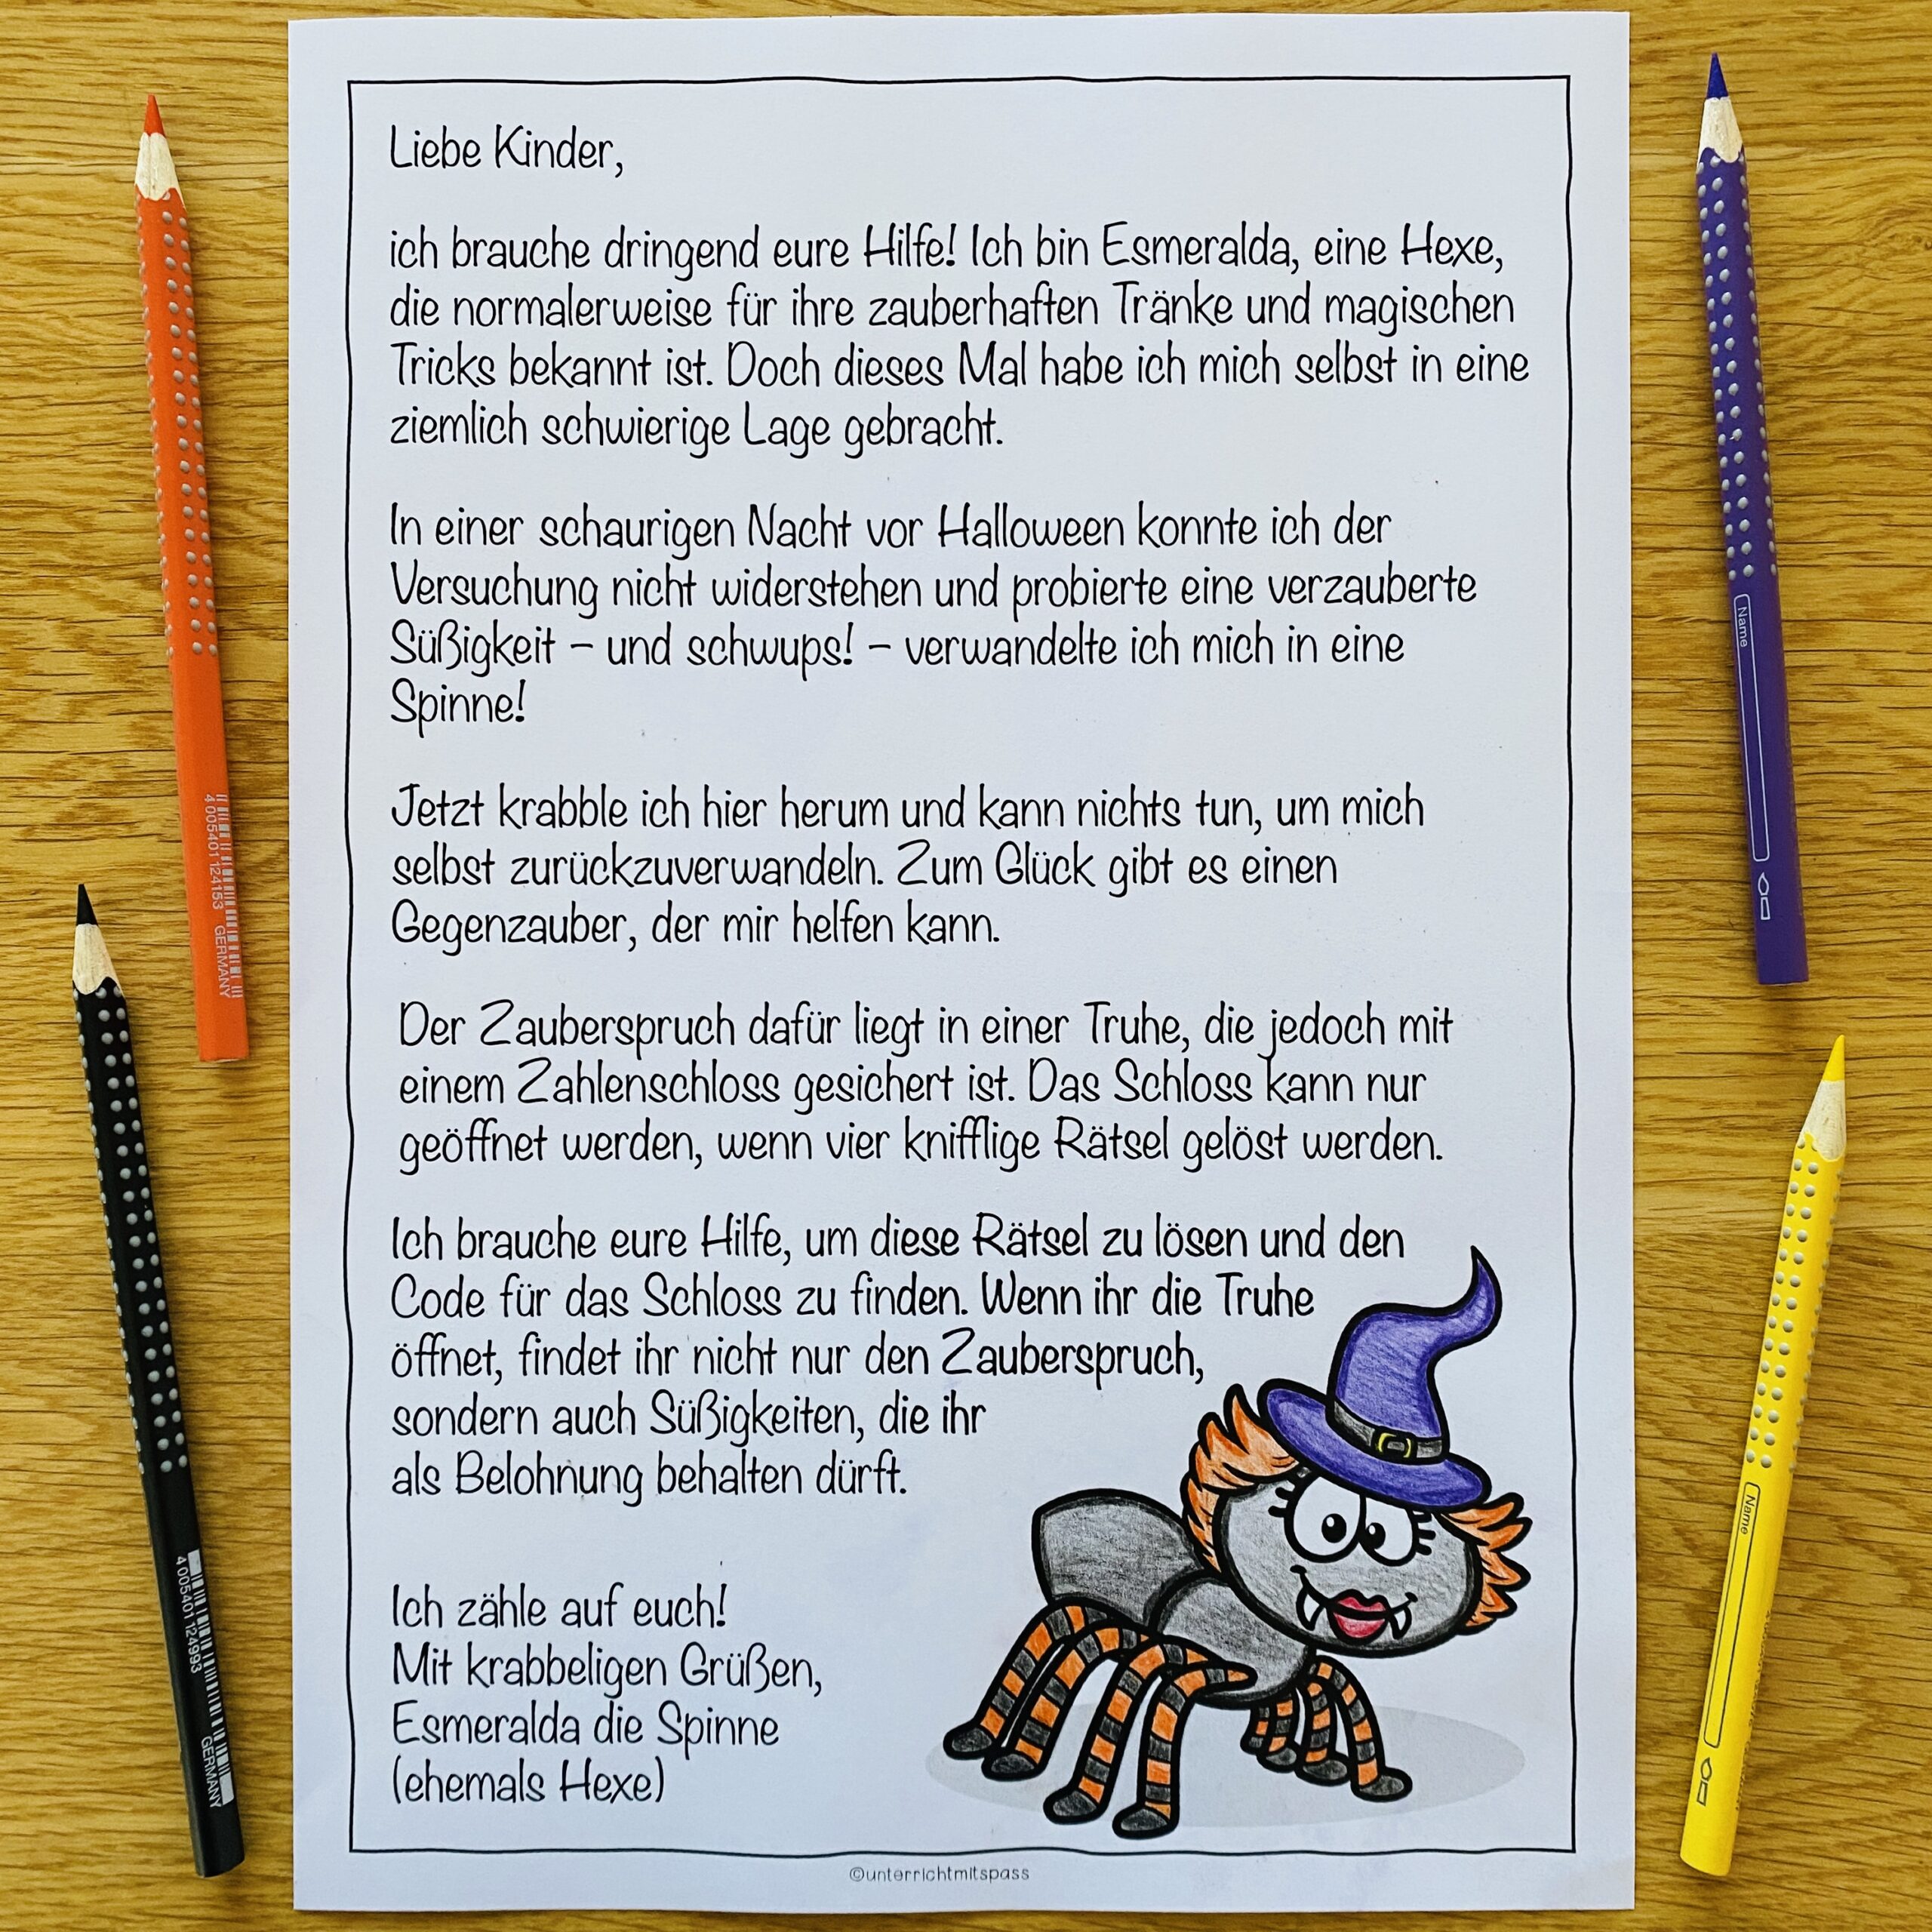 Liebe Kinder,
ich brauche dringend eure Hilfe! Ich bin Esmeralda, eine Hexe,
die normalerweise für ihre zauberhaften Tränke und magischen
Tricks bekannt ist. Doch dieses Mal habe ich mich selbst in eine
ziemlich schwierige Lage gebracht.
In einer schaurigen Nacht vor Halloween konnte ich der
Versuchung nicht widerstehen und probierte eine verzauberte
Süßigkeit – und schwups! – verwandelte ich mich in eine
Spinne!
Jetzt krabble ich hier herum und kann nichts tun, um mich
selbst zurückzuverwandeln. Zum Glück gibt es einen
Gegenzauber, der mir helfen kann.
Der Zauberspruch dafür liegt in einer Truhe, die jedoch mit
einem Zahlenschloss gesichert ist. Das Schloss kann nur
geöffnet werden, wenn vier knifflige Rätsel gelöst werden.
Ich brauche eure Hilfe, um diese Rätsel zu lösen und den
Code für das Schloss zu finden. Wenn ihr die Truhe
öffnet, findet ihr nicht nur den Zauberspruch,
sondern auch Süßigkeiten, die ihr
als Belohnung behalten dürft.
Ich zähle auf euch!
Mit krabbeligen Grüßen,
Esmeralda die Spinne
(ehemals Hexe)
©unterrichtmitspass
4 005401 124153 GERMANY
4 005401 124993 GERMANY
Name
Name